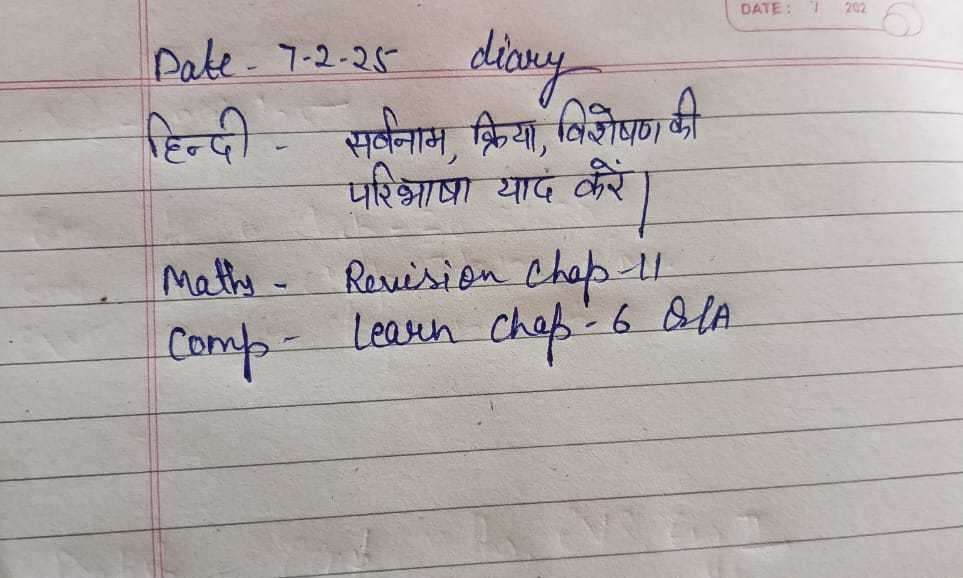 DATE: 7 202
Date - 7-2-25 diary
हिन्दी - सर्वनाम, क्रिया, विशेषण की
परिभाषा याद करें।
Maths - Revision Chap-11
Comp - Learn Chap-6 Q/A